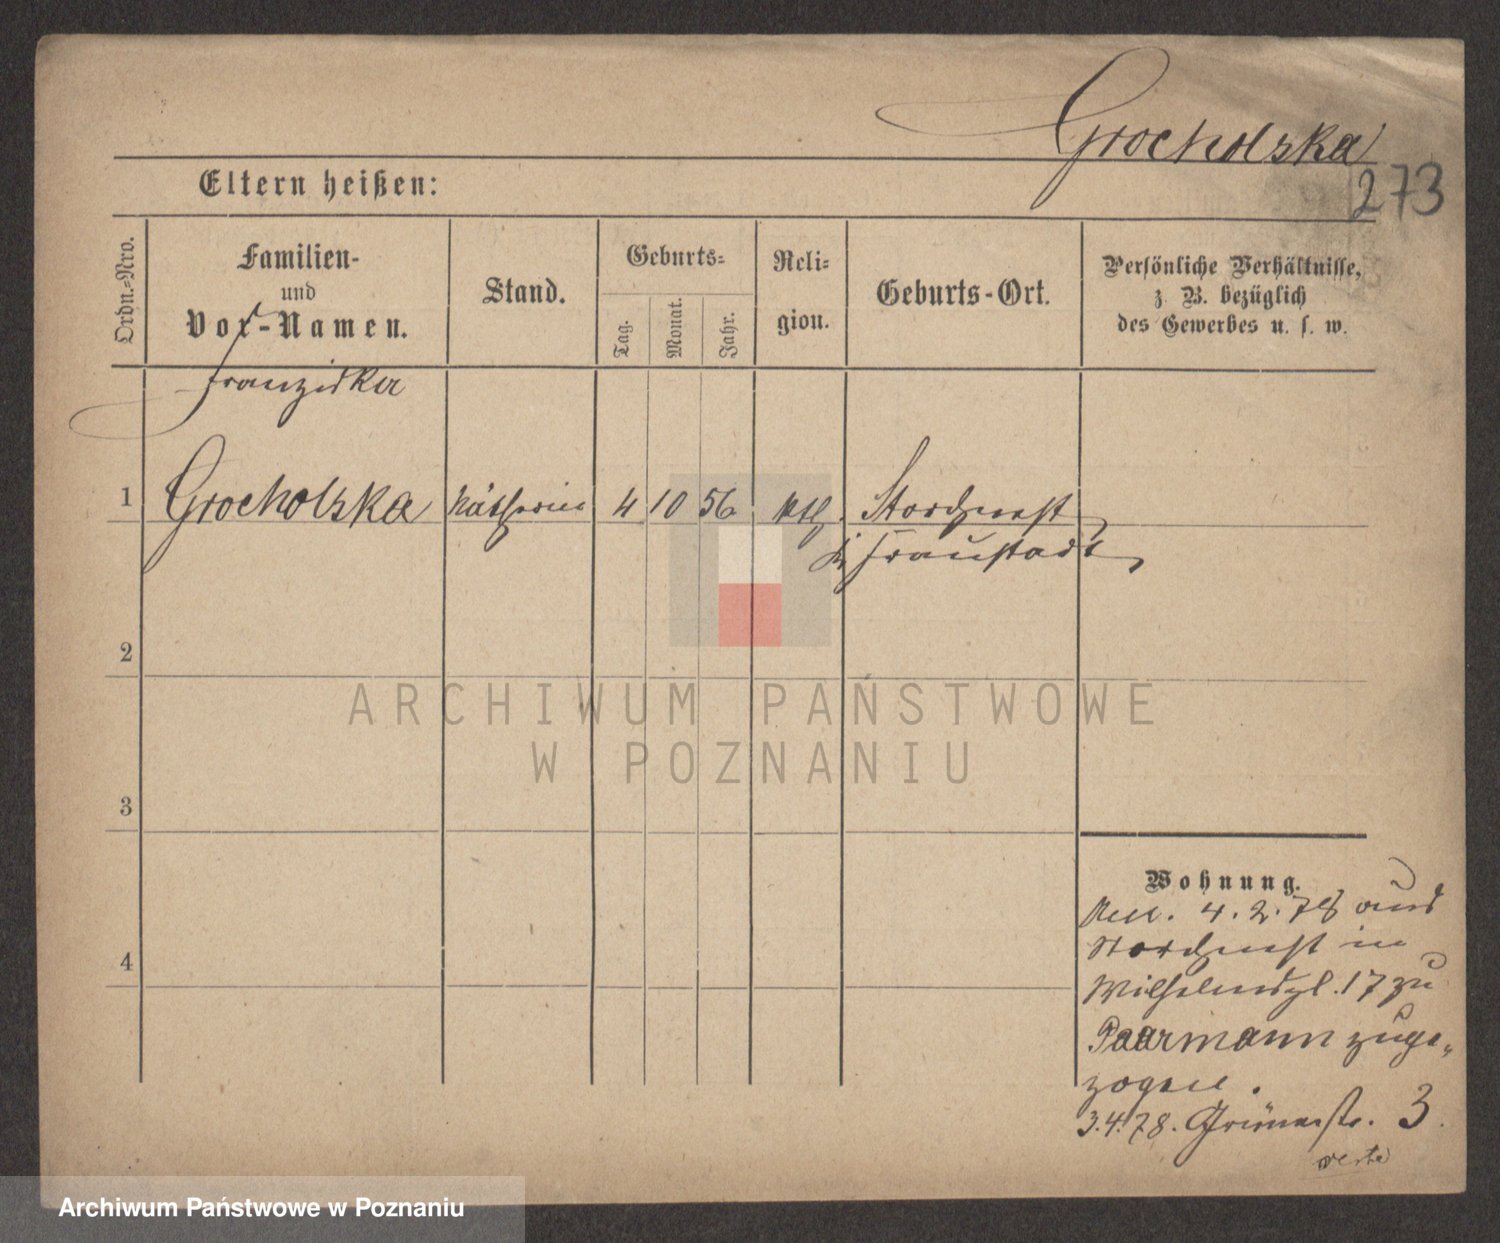 Grocholska
273
Eltern heißen:
Ordn.-Nro.
Familien-
und
Vor-Namen.
Stand.
Geburts-
Tag.
Monat.
Jahr.
Reli-
gion.
Geburts-Ort.
Persönliche Verhältnisse,
z. B. bezüglich
des Gewerbes u. s. w.
Franziska
1 Grocholska Nätherin 4 10 56 kth. Storchnest
Kr. Fraustadt
2
ARCHIWUM PAŃSTWOWE
W POZNANIU
3
4
Wohnung.
4.2.78 aus
Storchnest in
Wilhelmspl. 17 zu
Paarmann zuge-
zogen.
3.4.78. Grünestr. 3.
verte
Archiwum Państwowe w Poznaniu